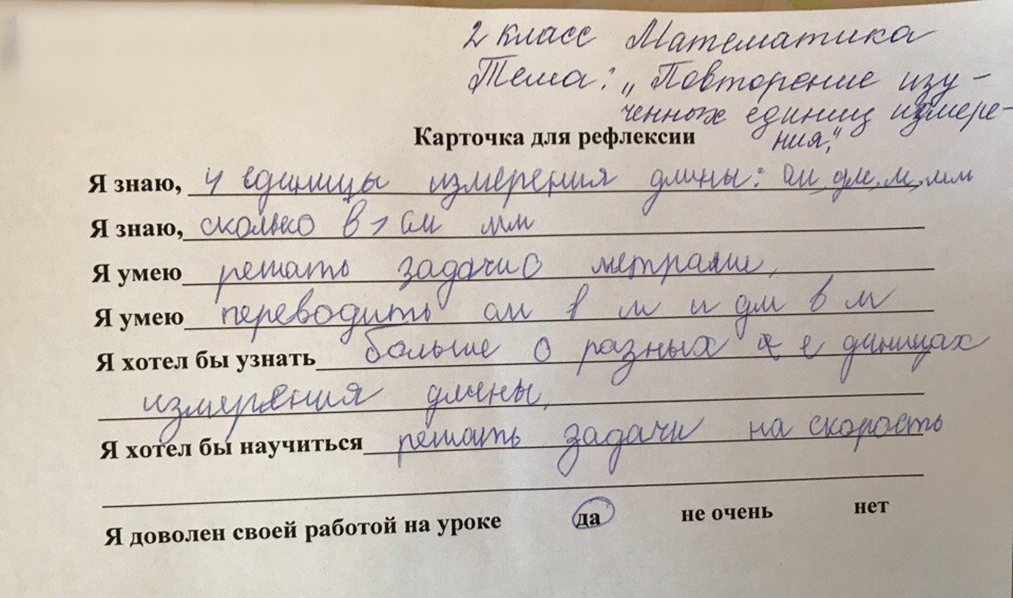 2 класс Математика
Тема: „Повторение изу-
ченных единиц измере-
ния,"
Карточка для рефлексии
Я знаю, 4 единицы измерения длины: см, дм, м, мм
Я знаю, сколько в 1 см мм
Я умею решать задачи с метрами,
Я умею переводить см в м и дм в м
Я хотел бы узнать больше о разных единицах
измерения длины,
Я хотел бы научиться решать задачи на скорость
Я доволен своей работой на уроке да не очень нет